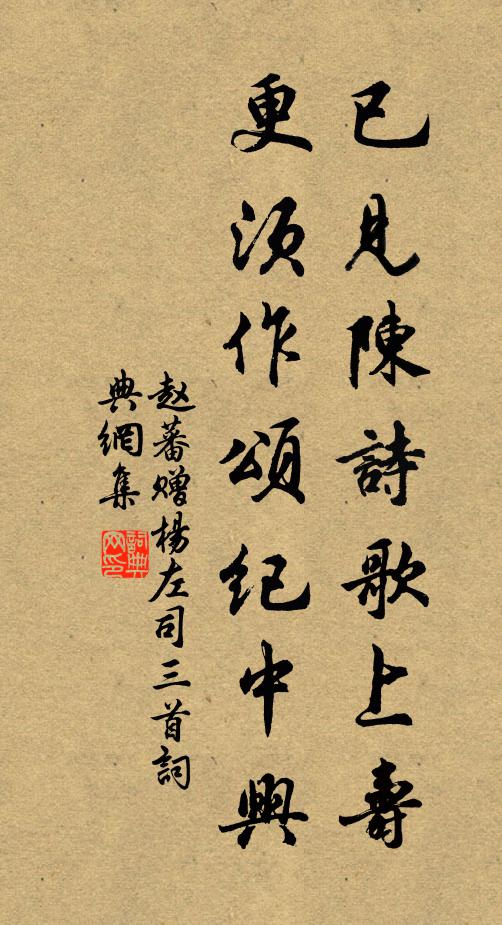 已見陳詩歌上壽
更須作頌紀中興
赵蕃贈楊左司三首詞
典網集
詞典
网印